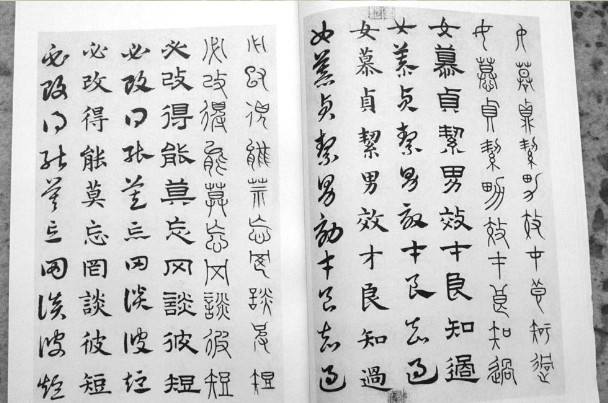 女慕貞絜男效才良知過
女慕貞絜男效才良知過
女慕貞絜男效才良知過
女慕貞絜男效才良知過
女慕貞絜男效才良知過
女慕貞絜男效才良知過
必改得能莫忘罔談彼短
必改得能莫忘罔談彼短
必改得能莫忘罔談彼短
必改得能莫忘罔談彼短
必改得能莫忘罔談彼短
必改得能莫忘罔談彼短